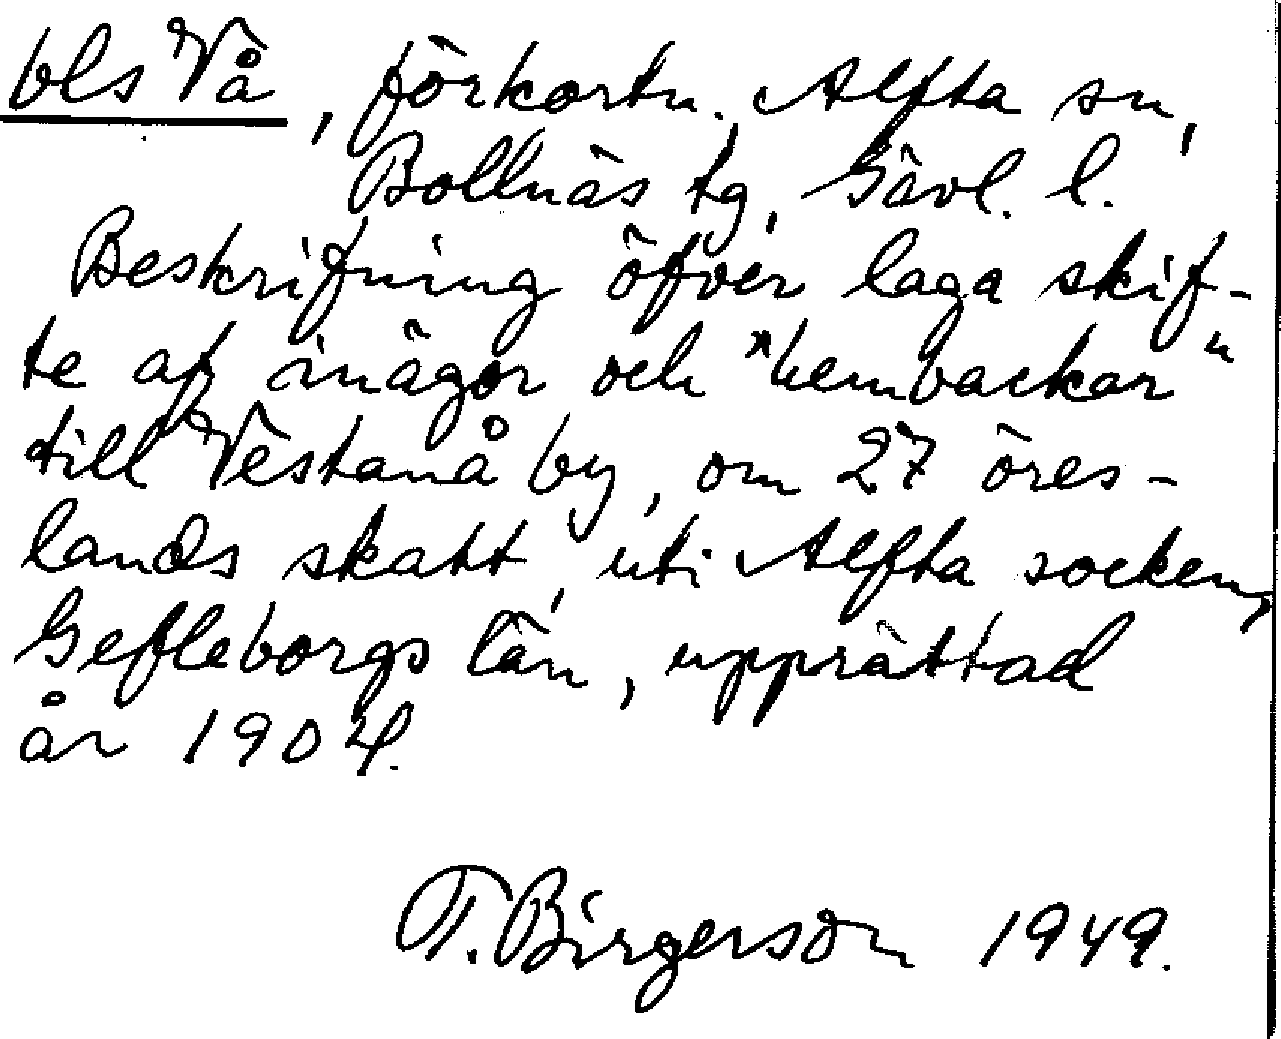 bls Vå, förkortn. Alfta sn,
Bollnäs tg, Gävl. l.
Beskrifning öfver laga skif-
te af inägor och "hembackar"
till Vestanå by, om 27 öres-
lands skatt, uti Alfta socken,
Gefleborgs län, upprättad
år 1904.
T. Birgerson 1949.